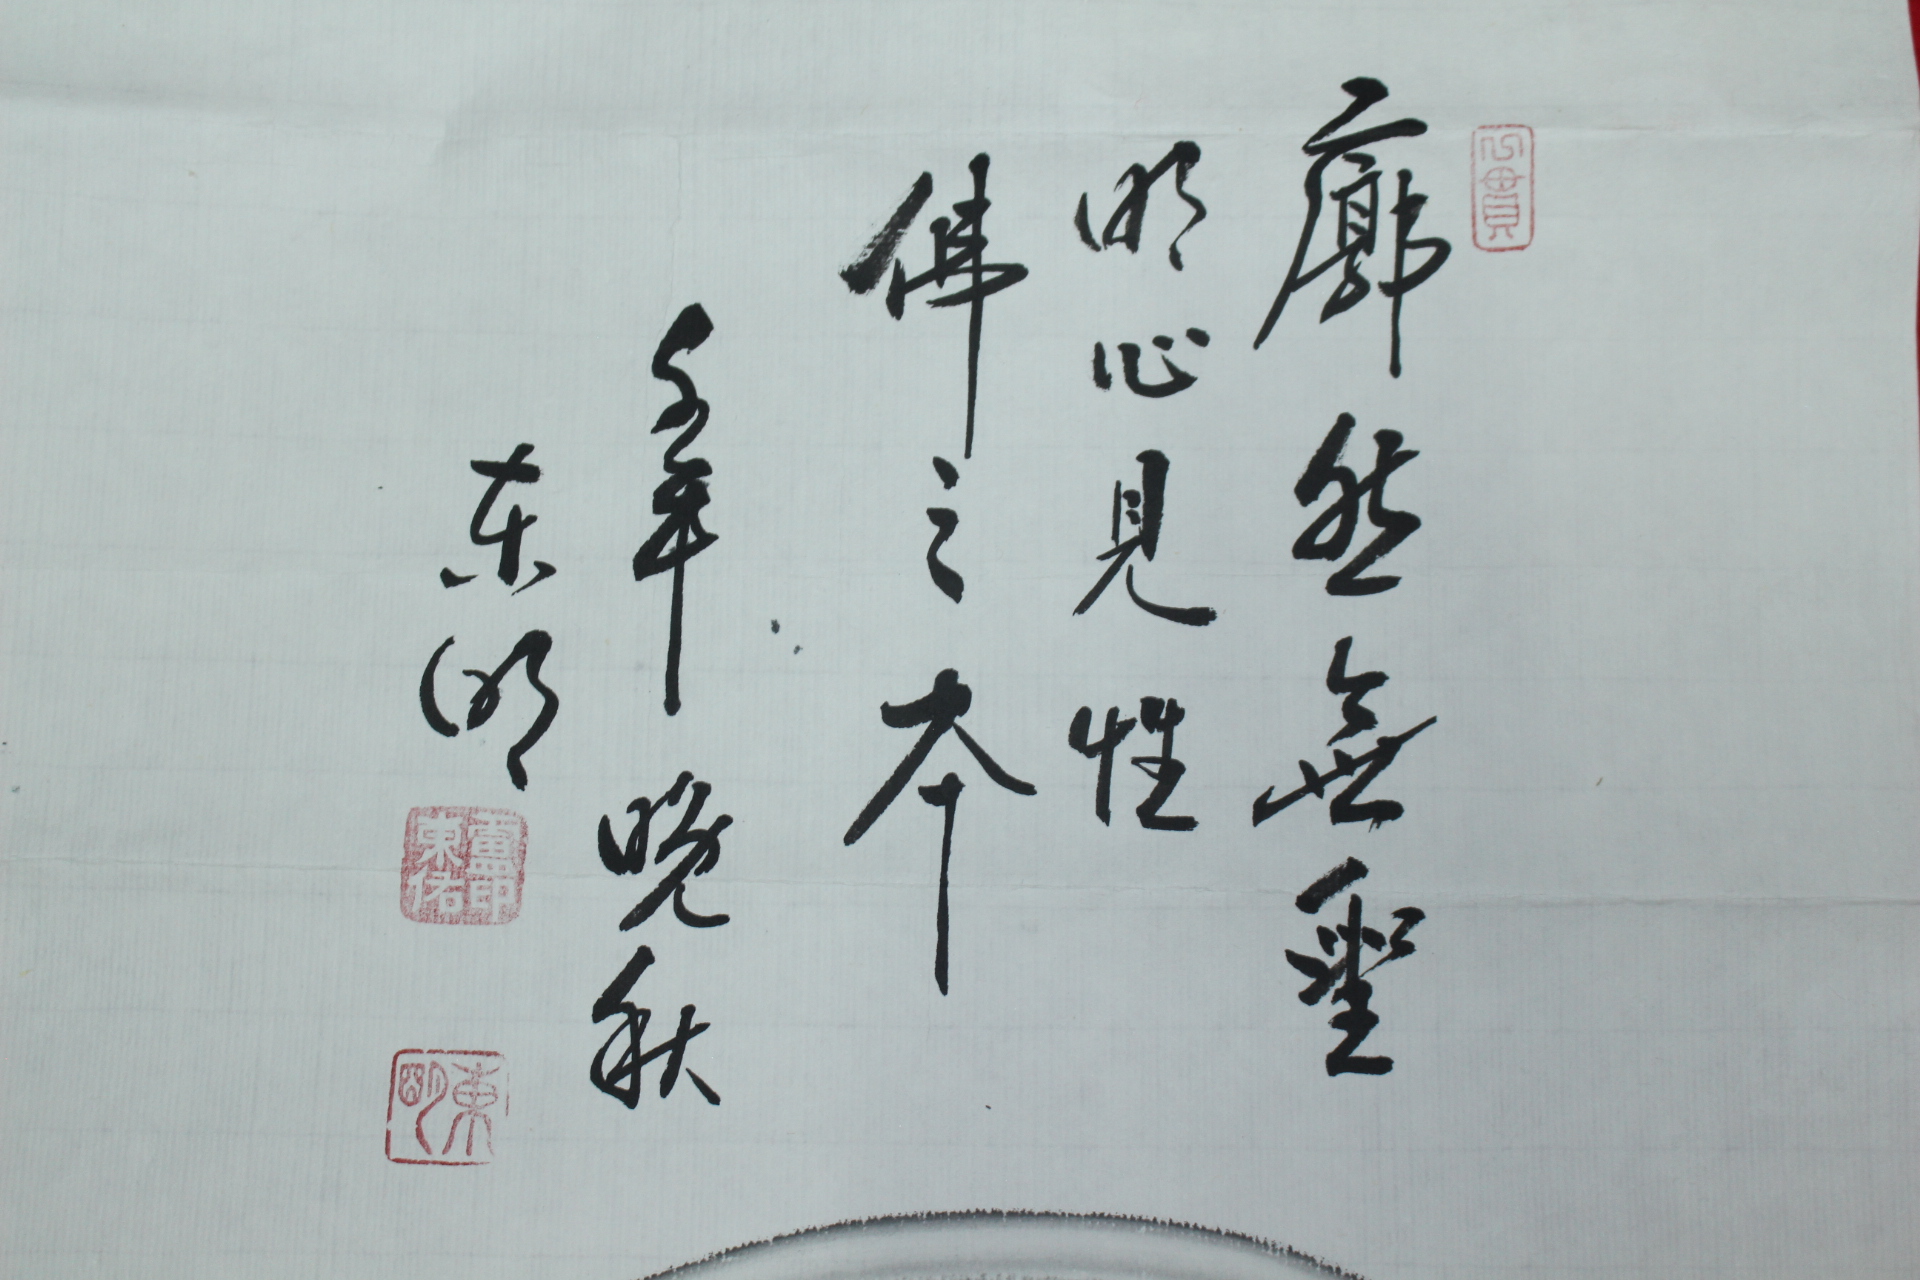 心貫
廓然無聖
明心見性
之本
年晚秋
东明
盧印東佑
東明